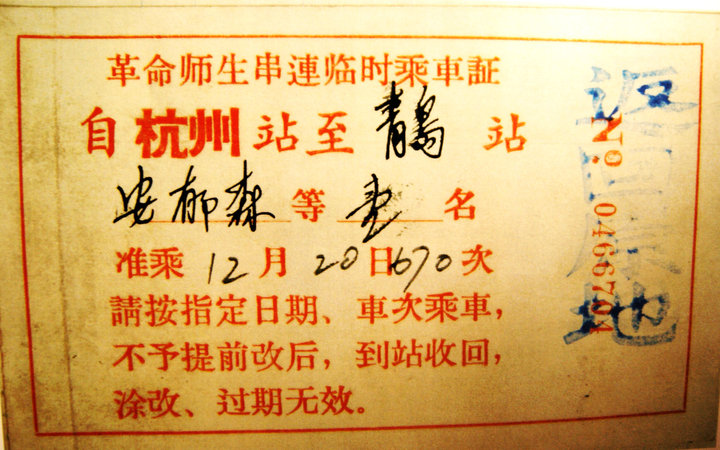 革命师生串連临时乘車証
自 杭州 站至 青島 站
安郁森 等 壹 名
准乘 12 月 20 日 670 次
請按指定日期、車次乘車，
不予提前改后，到站收回，
涂改、过期无效。
返回原地
No